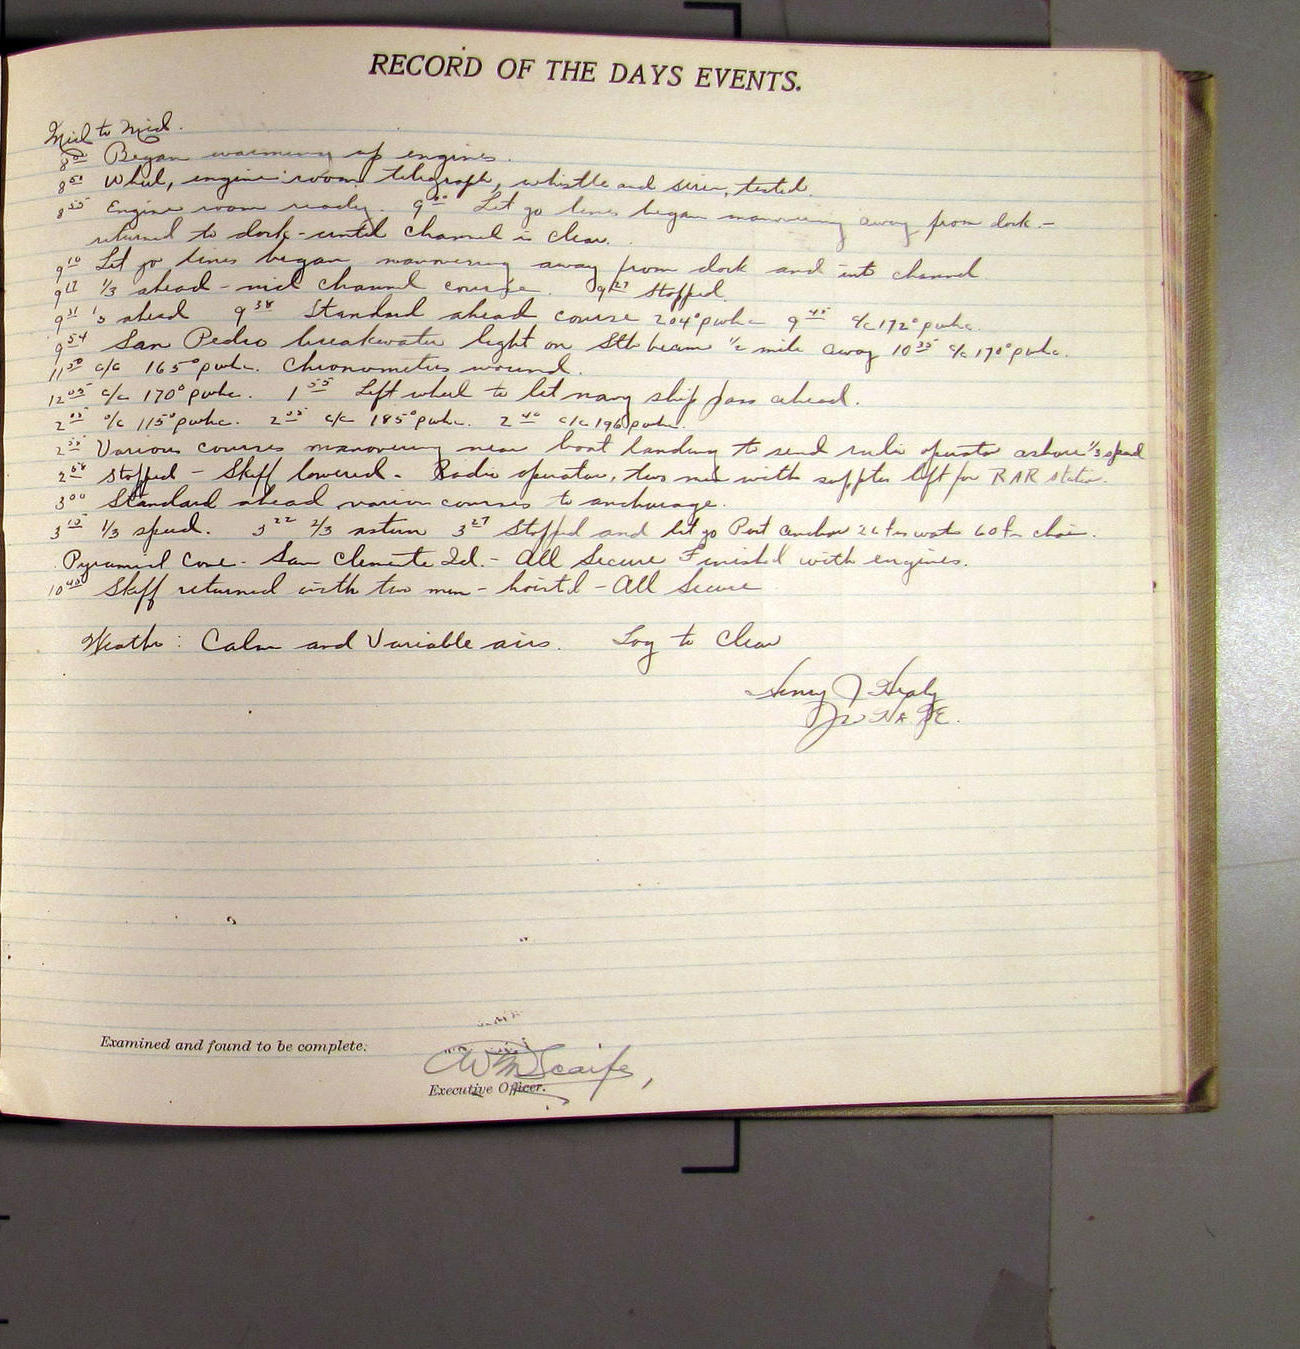 RECORD OF THE DAYS EVENTS.
Mid to Mid.
8⁰⁰ Began warming up engines.
8⁵⁰ Wheel, engine room telegraph, whistle and siren, tested.
8⁵⁵ Engine room ready. 9⁰⁰ Let go lines began manovering away from dock -
returned to dock - until channel is clear.
9¹⁰ Let go lines began manovering away from dock and into channel
9¹² 1/3 ahead - mid channel course. 9²⁷ Stopped.
9³¹ 1/3 ahead 9³⁸ Standard ahead course 204° pwhc 9⁴⁵ c/c 172° pwhc.
9⁵⁴ San Pedro breakwater light on Stb beam 1/2 mile away 10³⁵ c/c 170° pwhc.
11⁵⁰ c/c 165° pwhc. Chronometers wound.
12⁰⁵ c/c 170° pwhc. 1⁵⁵ Left wheel to let navy ship pass ahead.
2 c/c 115° pwhc. 2 c/c 185° pwhc. 2⁴⁰ c/c 196 pwhc.
2⁵⁵ Various courses manovering near boat landing to send radio operator ashore 1/3 speed
2⁵⁸ Stopped - Skiff lowered - Radio operator, two men with supplies left for RAR station.
3⁰⁰ Standard ahead various courses to anchorage.
3¹⁵ 1/3 speed. 3²² 2/3 astern 3²⁷ Stopped and let go Port anchor 26 fms water 60 fm chain.
Pyramid Cove - San Clemente Id. - All Secure Finished with engines.
10⁴⁰ Skiff returned with two men - hoisted - All Secure
Weather: Calm and Variable airs. Fog to Clear
Henry J Healy
Examined and found to be complete:
WM Scaife,
Executive Officer.